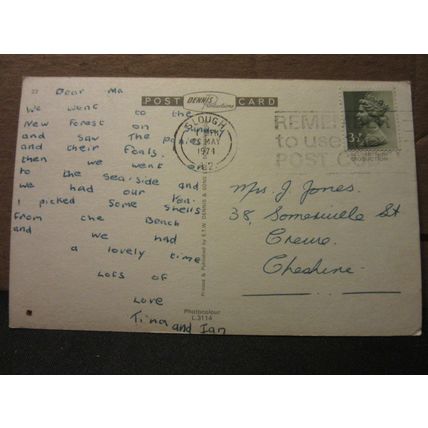 Dear Ma
We went to the
New Forest on Sunday
and saw The ponies
and their Foals.
then we went on
to the sea-side and
we had our tea.
I picked some shells
From the Beach
and we had
a lovely time
Lots of
Love
Tina and Ian
POST DENNIS Productions CARD
SLOUGH
MAY
1974
REMEMBER
to use
POST CODE
3½P
Mrs J. Jones.
38, Somerville St
Crewe.
Cheshire.
Printed & Published by E.T.W. DENNIS & SONS
PRODUCTION
Photocolour
L.3114